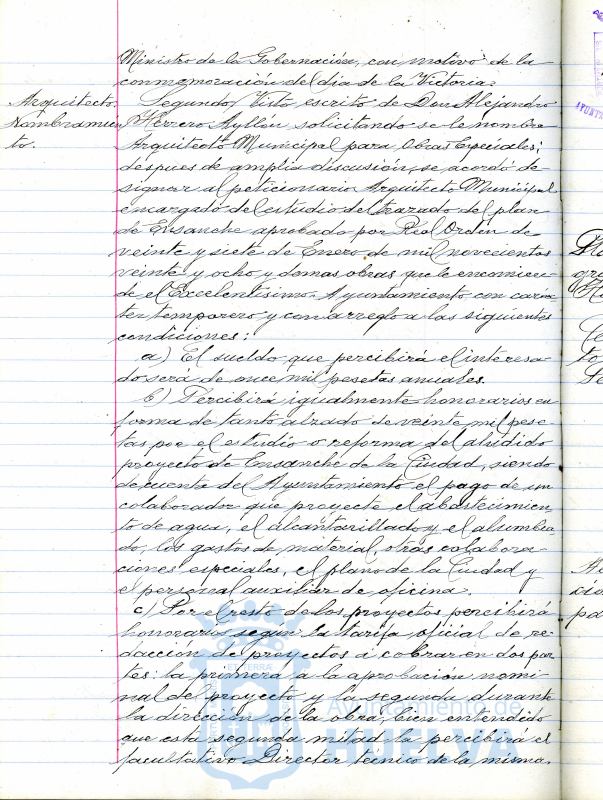 Ministro de la Gobernación, con motivo de la
conmemoración del dia de la Victoria.
Arquitecto.
Nombramien
to.
Segundo, Visto escrito de Don Alejandro
Herrero Ayllón, solicitando se le nombre
Arquitecto Municipal para Obras Especiales;
despues de amplia discusión, se acordó de
signar al peticionario Arquitecto Municipal
encargado del estudio del trazado del plan
de Ensanche aprobado por Real Orden de
veinte y siete de Enero de mil novecientos
veinte y ocho y demas obras que le encomien
de el Excelentísimo Ayuntamiento con carác
ter temporero y con arreglo a las siguientes
condiciones:
a) El sueldo que percibirá el interesa
do será de once mil pesetas anuales.
b) Percibirá igualmente honorarios en
forma de tanto alzado de veinte mil pese
tas por el estudio o reforma del aludido
proyecto de Ensanche de la Ciudad, siendo
de cuenta del Ayuntamiento el pago de un
colaborador que proyecte el abastecimien
to de agua, el alcantarillado y el alumbra
do, los gastos de material, otras colabora-
ciones especiales, el plano de la Ciudad y
el personal auxiliar de oficina.
c) Por el resto de los proyectos percibirá
honorarios segun la tarifa oficial de re-
dacción de proyectos a cobrar en dos par
tes: la primera a la aprobación nomi-
nal del proyecto y la segunda durante
la dirección de la obra, bien entendido
que esta segunda mitad la percibirá el
facultativo Director técnico de la misma.
Ayuntamiento de
HUELVA